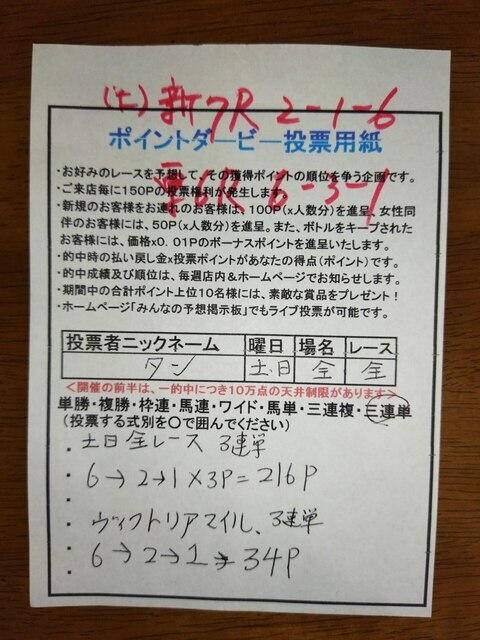 (土) 新7R 2-1-6
ポイントダービー投票用紙
・お好みのレースを予想して、その獲得ポイントの順位を争う企画です。
・ご来店毎に150Pの投票権利が発生します。
6R 6-3-1
・新規のお客様をお連れのお客様は、100P(x人数分)を進呈、女性同
伴のお客様には、50P(x人数分)を進呈。また、ボトルをキープされた
お客様には、価格x0.01Pのボーナスポイントを進呈いたします。
・的中時の払い戻し金x投票ポイントがあなたの得点(ポイント)です。
・的中成績及び順位は、毎週店内&ホームページでお知らせします。
・期間中の合計ポイント上位10名様には、素敵な賞品をプレゼント!
・ホームページ「みんなの予想掲示板」でもライブ投票が可能です。
投票者ニックネーム 曜日 場名 レース
タン 土日 全 全
<開催の前半は、一的中につき10万点の天井制限があります>
単勝・複勝・枠連・馬連・ワイド・馬単・三連複・三連単
(投票する式別を〇で囲んでください)
・土日全レース 3連単
・6→2→1×3P=216P
・ヴィクトリアマイル、3連単
・6→2→1 34P